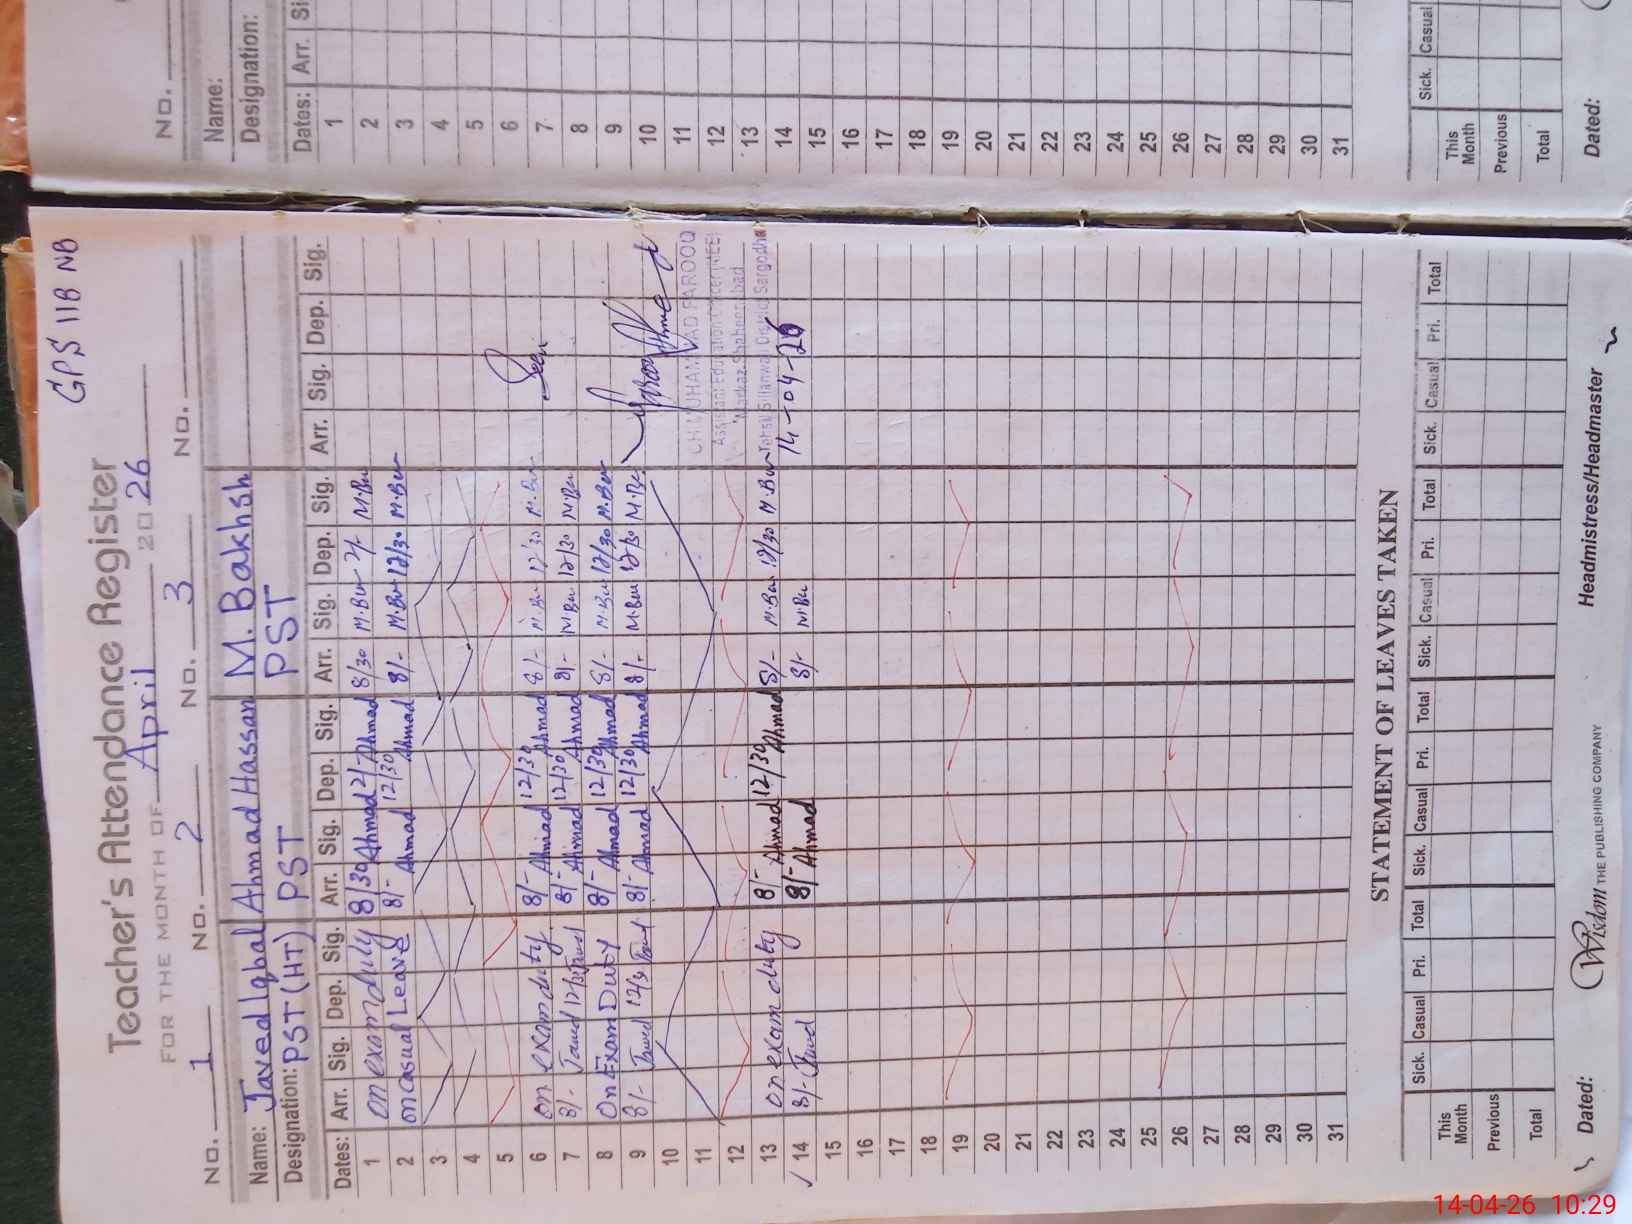 GPS 11B NB
Teacher's Attendance Register
FOR THE MONTH OF April 2026
No. 1 No. 2 No. 3 No.
Name: Javed Iqbal Ahmad Hassan M. Bakhsh
Designation: PST (HT) PST PST
Dates: Arr. Sig. Dep. Sig. Arr. Sig. Dep. Sig. Arr. Sig. Dep. Sig. Arr. Sig. Dep. Sig.
1 on exam duty 8/30 Ahmad 12/- Ahmad 8/30 M.Bux M.Bux
2 on Casual Leave 8/- Ahmad 12/30 Ahmad 8/- M.Bux 12/30 M.Bux
3
4
5
6 on exam duty 8/- Ahmad 12/30 Ahmad 8/- M.Bux 12/30 M.Bux Seen
7 8/- Javed Javed 8/- Ahmad 12/30 Ahmad 8/- M.Bux 12/30 M.Bux
8 On Exam Duty 8/- Ahmad 12/30 Ahmad 8/- M.Bux 12/30 M.Bux
9 8/- Javed 8/- Ahmad 12/30 Ahmad 8/- M.Bux 12/30
10
11 CH. MUHAMMAD FAROOQ
Assistant Education Officer
12 Markaz Shaheenabad
Tehsil Sillanwali District Sargodha
13 on exam duty 8/- Ahmad 12/30 Ahmad 8/- M.Bux 12/30 M.Bux
14 8/- Javed 8/- Ahmad 8/- M.Bux 14-04-26
15
16
17
18
19
20
21
22
23
24
25
26
27
28
29
30
31
STATEMENT OF LEAVES TAKEN
Sick. Casual Pri. Total Sick. Casual Pri. Total Sick. Casual Pri. Total Sick. Casual Pri. Total
This Month
Previous
Total
Dated: Wisdom THE PUBLISHING COMPANY Headmistress/Headmaster
No.
Name:
Designation:
Dates: Arr.
1
2
3
4
5
6
7
8
9
10
11
12
13
14
15
16
17
18
19
20
21
22
23
24
25
26
27
28
29
30
31
Sick. Casual
This Month
Previous
Total
Dated:
14-04-26 10:29